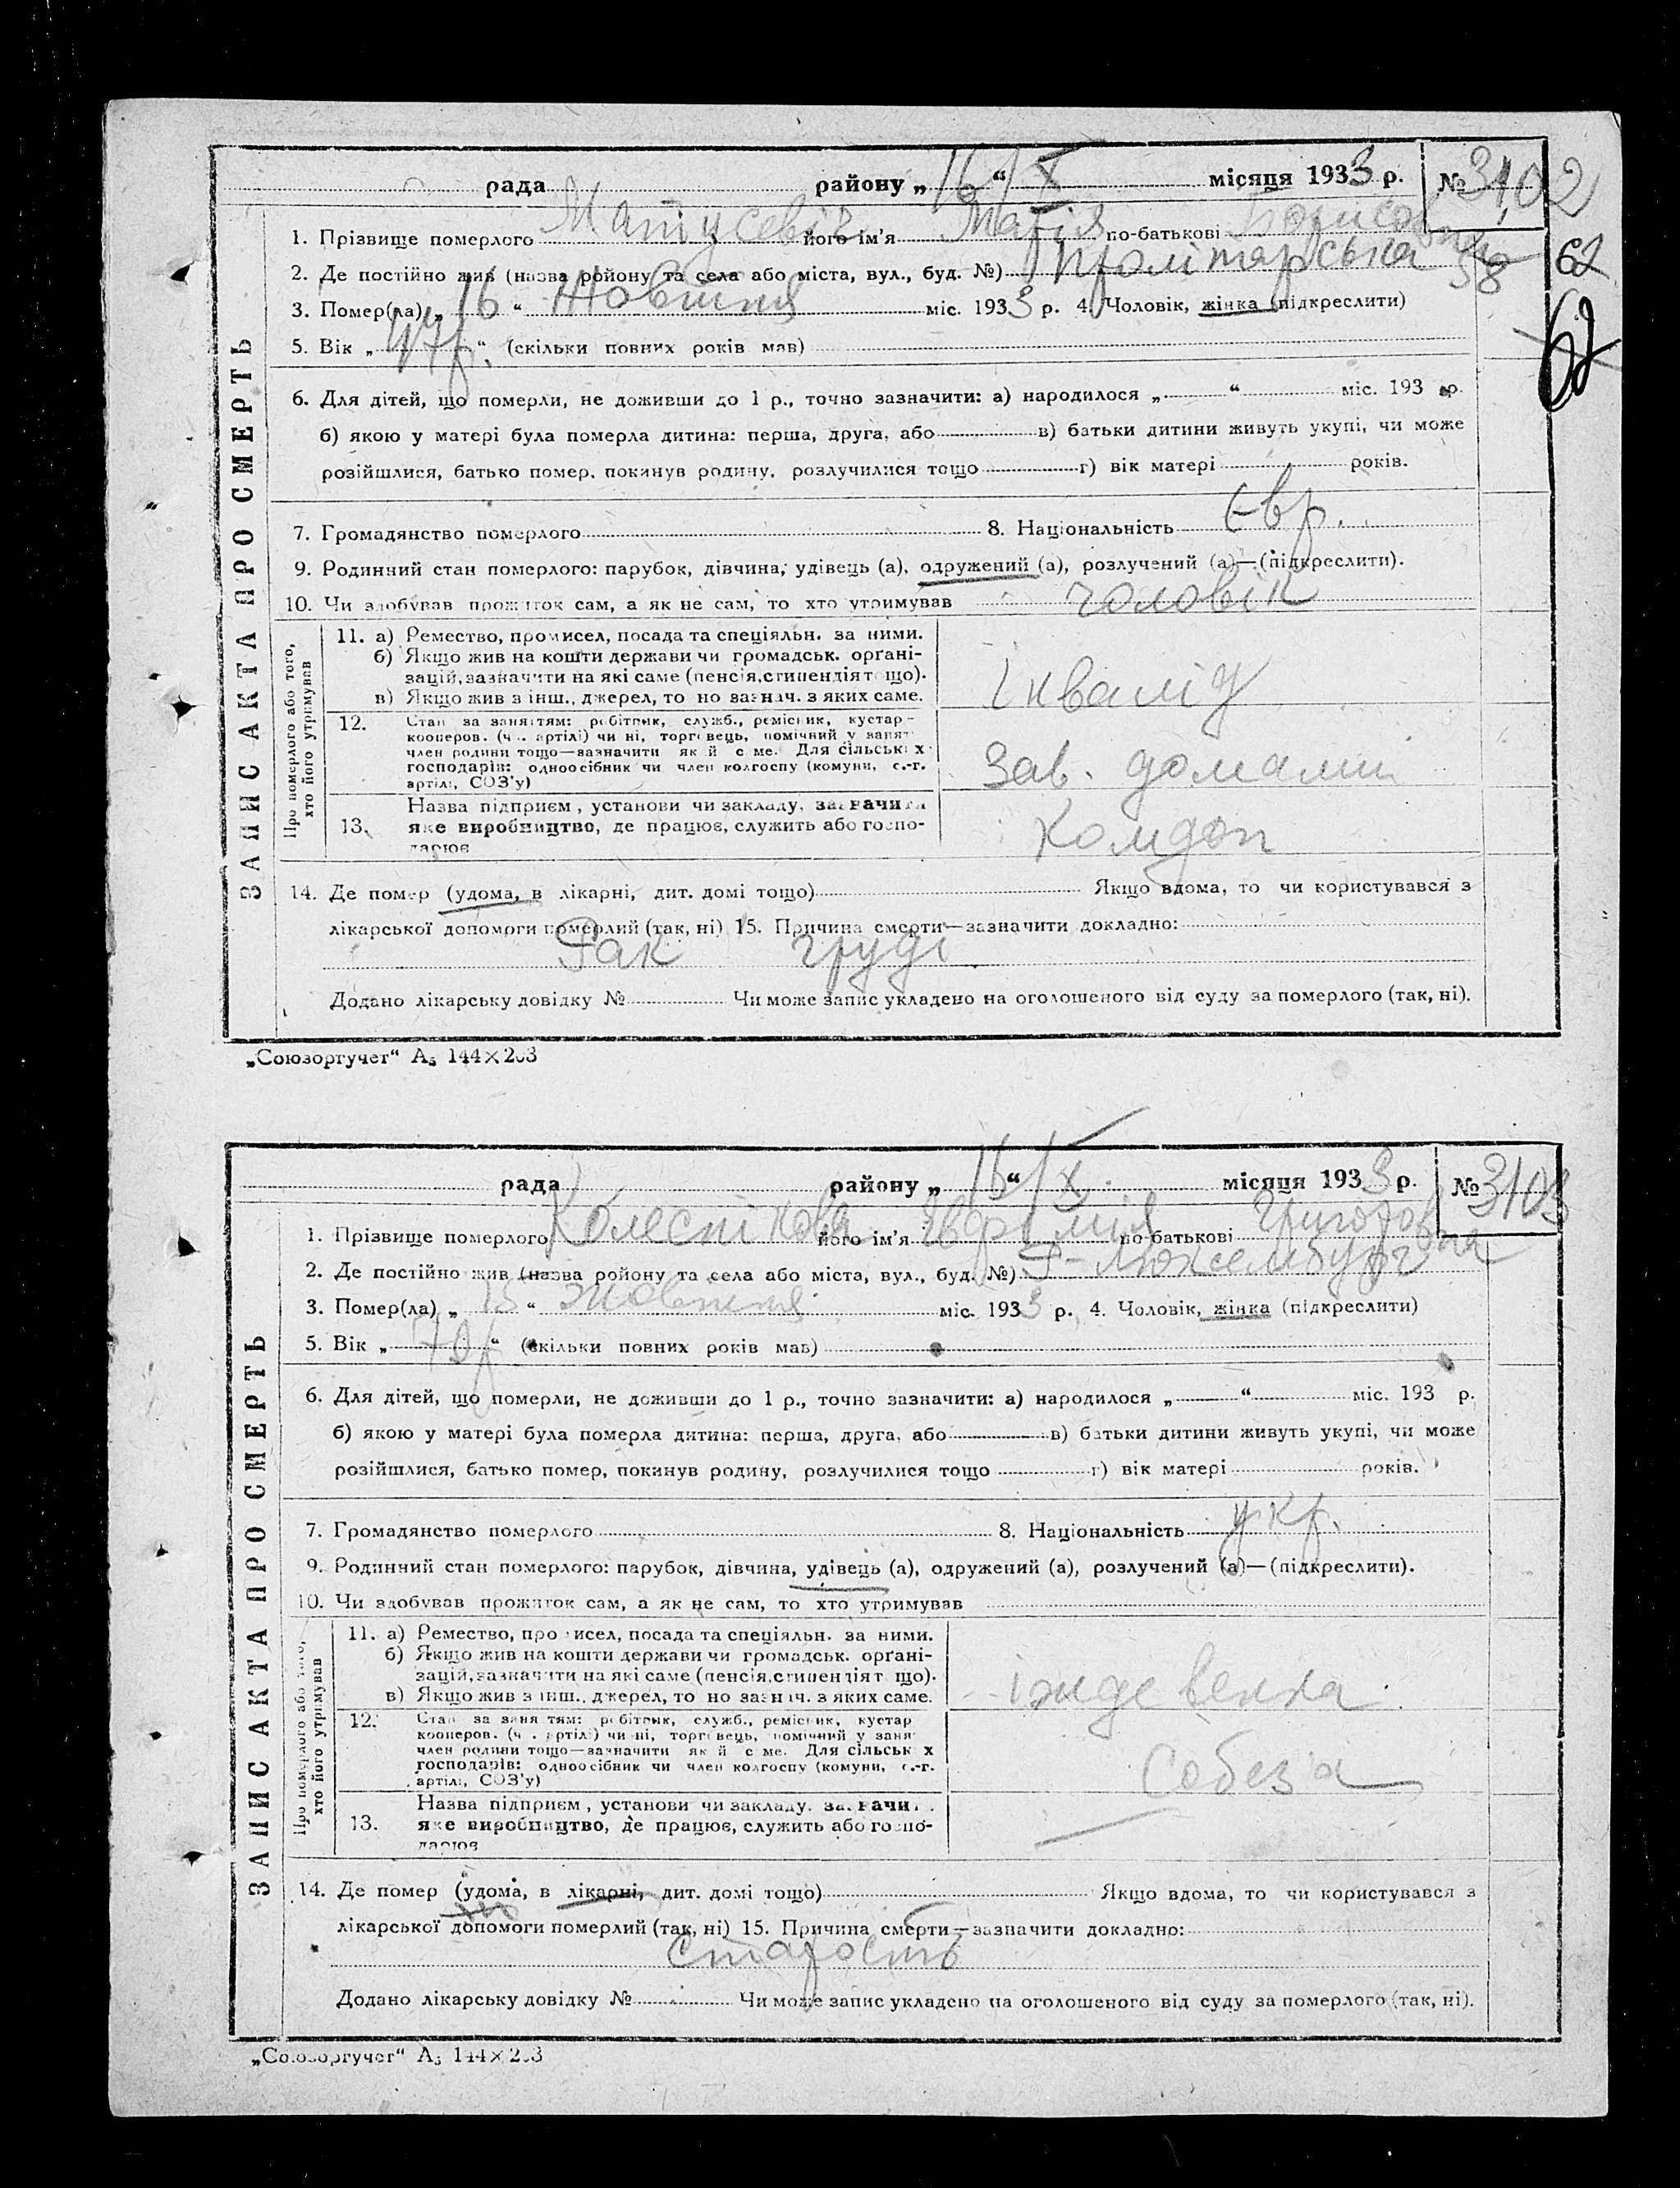 рада району „16“ X місяця 1933 р. № 3102
1. Прізвище померлого Матусевіч його ім’я Марія по-батькові Борисовна
2. Де постійно жив (назва ройону та села або міста, вул., буд. №) Пролітарська 58
62
3. Помер(ла) „16“ Жовтня міс. 1933 р. 4. Чоловік, жінка (підкреслити)
62
5. Вік „47р.“ (скільки повних років мав)
6. Для дітей, що померли, не доживши до 1 р., точно зазначити: а) народилося „ “ міс. 193 р.
б) якою у матері була померла дитина: перша, друга, або в) батьки дитини живуть укупі, чи може
розійшлися, батько помер, покинув родину, розлучилися тощо г) вік матері років.
7. Громадянство померлого 8. Національність Євр.
9. Родинний стан померлого: парубок, дівчина, удівець (а), одружений (а), розлучений (а)—(підкреслити).
10. Чи здобував прожиток сам, а як не сам, то хто утримував чоловік
ЗАПИС АКТА ПРО СМЕРТЬ
Про померлого або того, хто його утримував
11. а) Ремество, промисел, посада та спеціяльн. за ними.
б) Якщо жив на кошти держави чи громадськ. орґані-
зацій, зазначити на які саме (пенсія, стипендія тощо).
в) Якщо жив з інш., джерел, то но зазнач. з яких саме.
інвалід
12. Стан за заняттям: робітник, служб., ремісник, кустар-
кооперов. (ч. артілі) чи ні, торговець, помічний у занят
член родини тощо—зазначити як й с ме. Для сільськ х
господарів: одноосібник чи член колгоспу (комуни, с.-г.
артілі, СОЗ’у)
Зав. домами
Назва підприєм, установи чи закладу, зазначити
13. яке виробництво, де працює, служить або госпо-
дарює
Комдоп
14. Де помер (удома, в лікарні, дит. домі тощо) Якщо вдома, то чи користувався з
лікарської допомоги померлий (так, ні) 15. Причина смерти—зазначити докладно:
Рак груді
Додано лікарську довідку № Чи може запис укладено на оголошеного від суду за померлого (так, ні).
„Союзоргучет“ А₅ 144×203
рада району „16“ X місяця 1933 р. № 3103
1. Прізвище померлого Колеснікова його ім’я Евфімія по батькові Григоровна
2. Де постійно жив (назва ройону та села або міста, вул., буд. №) Р-Люксембург
3. Помер(ла) „15“ Жовтня міс. 1933 р. 4. Чоловік, жінка (підкреслити)
5. Вік „70р“ (скільки повних років мав)
6. Для дітей, що померли, не доживши до 1 р., точно зазначити: а) народилося „ “ міс. 193 р.
б) якою у матері була померла дитина: перша, друга, або в) батьки дитини живуть укупі, чи може
розійшлися, батько помер, покинув родину, розлучилися тощо г) вік матері років.
7. Громадянство померлого 8. Національність укр.
9. Родинний стан померлого: парубок, дівчина, удівець (а), одружений (а), розлучений (а)—(підкреслити).
10. Чи здобував прожиток сам, а як не сам, то хто утримував
ЗАПИС АКТА ПРО СМЕРТЬ
Про померлого або того, хто його утримував
11. а) Ремество, промисел, посада та спеціяльн. за ними.
б) Якщо жив на кошти держави чи громадськ. орґані-
зацій, зазначити на які саме (пенсія, стипендія т що).
в) Якщо жив з інш., джерел, то но зазнач. з яких саме.
іждевенка
12. Стан за заня тям: робітник, служб., ремісник, кустар
кооперов. (ч. артілі) чи ні, торговець, помічний у заня
член родини тощо—зазначити як й с ме. Для сільськ х
господарів: одноосібник чи член колгоспу (комуни, с.-г.
артілі, СОЗ’у)
Собез’а
Назва підприєм, установи чи закладу, зазначи
13. яке виробництво, де працює, служить або госпо-
дарює
14. Де помер (удома, в лікарні, дит. домі тощо) Якщо вдома, то чи користувався з
лікарської допомоги померлий (так, ні) 15. Причина смерти—зазначити докладно:
старость
Додано лікарську довідку № Чи може запис укладено на оголошеного від суду за померлого (так, ні).
„Союзоргучет“ А₅ 144×203